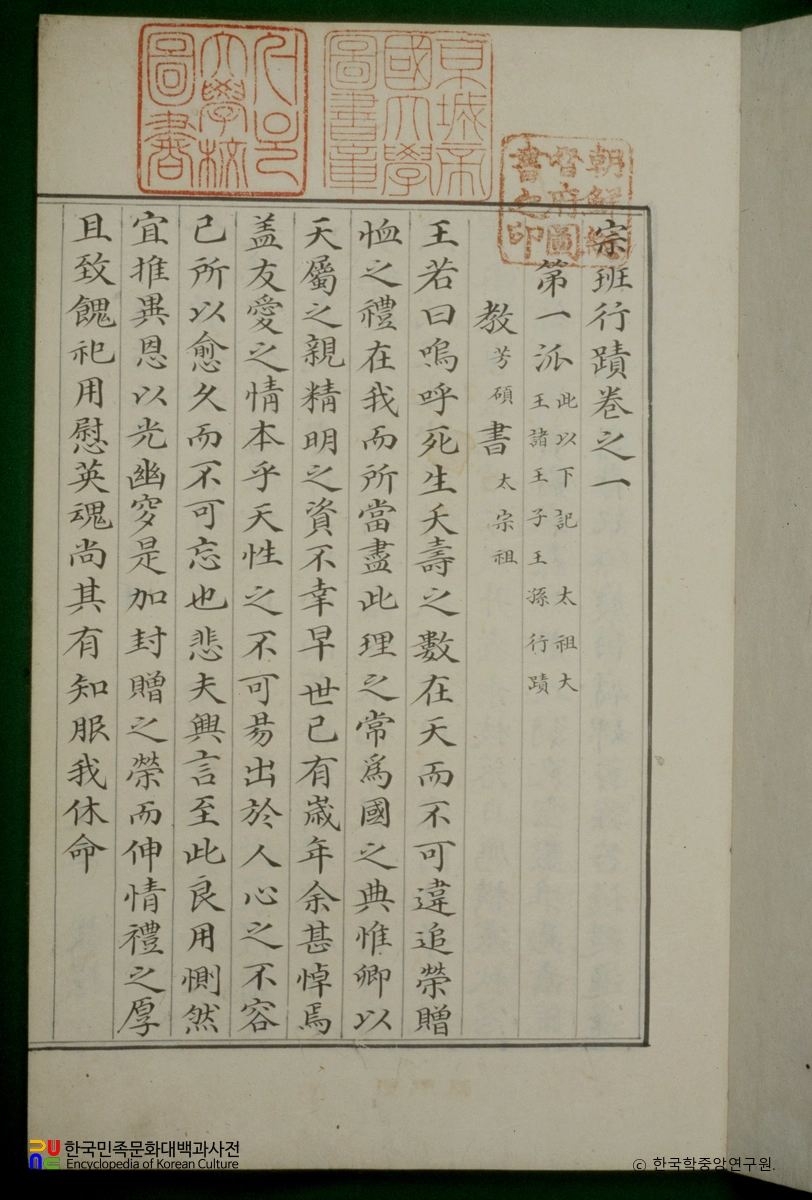 朝鮮總
督府圖
書之印
京城帝
國大學
圖書章
서울
大學校
圖書
宗班行蹟卷之一
第一派 此以下記 太祖大
王諸王子王孫行蹟
教芳碩書太宗祖
王若曰嗚呼死生夭壽之數在天而不可違追榮贈
恤之禮在我而所當盡此理之常爲國之典惟卿以
天屬之親精明之資不幸早世已有歲年余甚悼焉
盖友愛之情本乎天性之不可易出於人心之不容
已所以愈久而不可忘也悲夫興言至此良用惻然
宜推異恩以光幽穸是加封贈之榮而伸情禮之厚
且致餽祀用慰英魂尚其有知服我休命
한국민족문화대백과사전
Encyclopedia of Korean Culture
ⓒ 한국학중앙연구원.